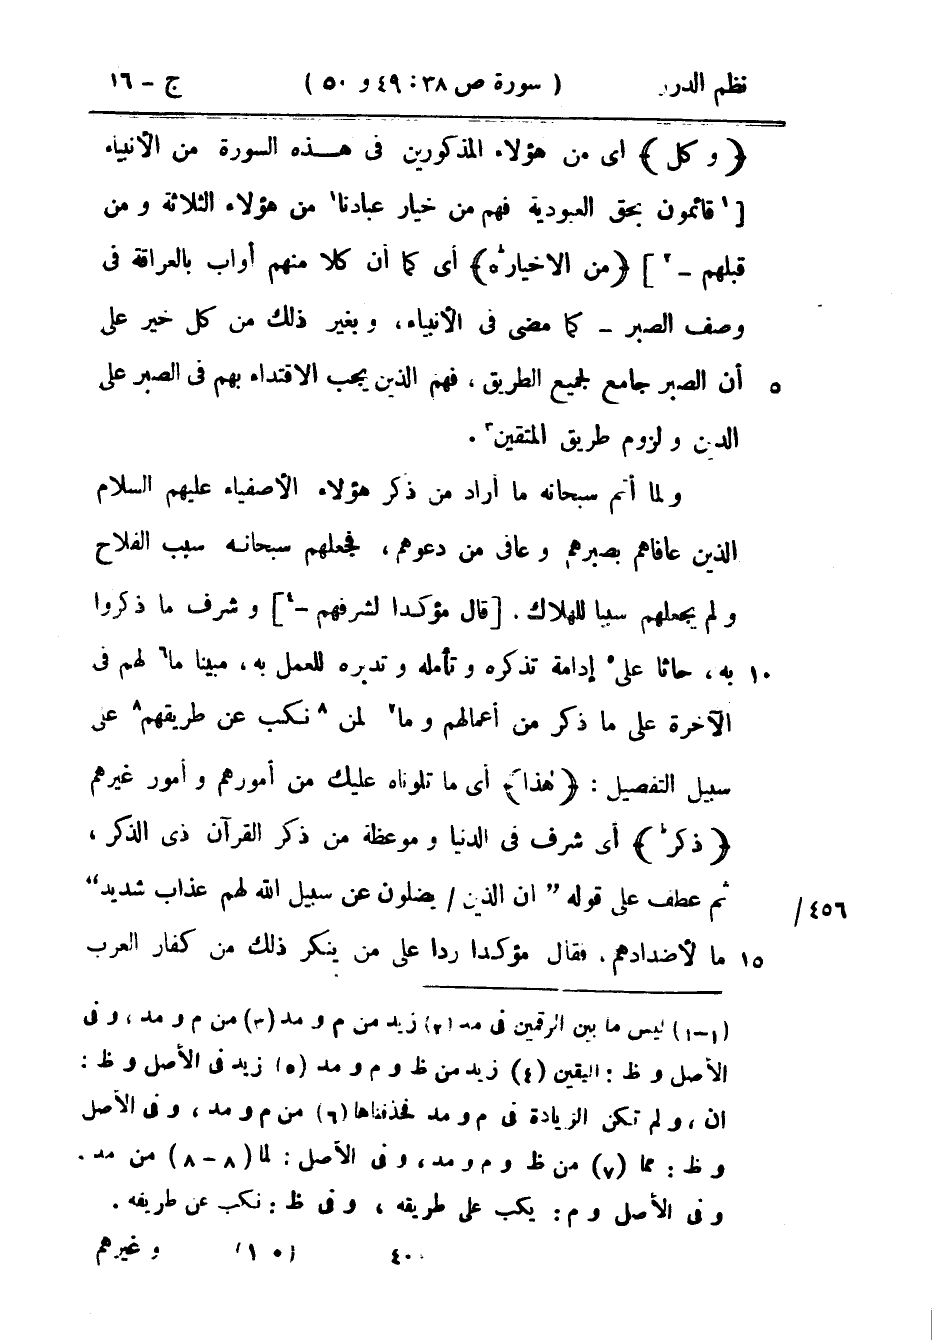 نظم الدرر ( سورة ص ٣٨ : ٤٩ و ٥٠ ) ج – ١٦
﴿ و كل ﴾ اى من هؤلاء المذكورين فى هذه السورة من الأنبياء
[ ١ قائمون بحق العبودية فهم من خيار عبادنا١ من هؤلاء الثلاثة و من
قبلهم – ٢ ] ﴿ من الاخيار ٥ۚ ﴾ أى كما أن كلا منهم أواب بالعراقة فى
وصف الصبر – كما مضى فى الأنبياء، و بغير ذلك من كل خير على
٥ أن الصبر جامع لجميع الطريق ، فهم الذين يجب الاقتداء بهم فى الصبر على
الدين و لزوم طريق المتقين٣ .
و لما أتم سبحانه ما أراد من ذكر هؤلاء الأصفياء عليهم السلام
الذين عافاهم بصبرهم و عافى من دعوهم ، فجعلهم سبحانه سبب الفلاح
و لم يجعلهم سببا للهلاك . [ قال مؤكدا لشرفهم –٤ ] و شرف ما ذكروا
١٠ به ، حاثا على٥ إدامة تذكره و تأمله و تدبره للعمل به ، مبينا ما٦ لهم فى
الآخرة على ما ذكر من أعمالهم و ما٧ لمن ٨ نكب عن طريقهم٨ على
سبيل التفصيل : ﴿ هٰذا ﴾ أى ما تلوناه عليك من أمورهم و أمور غيرهم
﴿ ذكر ۚ ﴾ أى شرف فى الدنيا و موعظة من ذكر القرآن ذى الذكر ،
ثم عطف على قوله ” ان الذين / يضلون عن سبيل الله لهم عذاب شديد “ ٤٥٦/
١٥ ما لأضدادهم ، فقال مؤكدا ردا على من ينكر ذلك من كفار العرب
(١–١) ليس ما بين الرقمين فى مد (٢) زيد من م و مد (٣) من م و مد ، و فى
الأصل و ظ : اليقين (٤) زيد من ظ و م و مد (٥) زيد فى الأصل و ظ :
ان ، و لم تكن الزيادة فى م و مد فحذفناها (٦) من م و مد ، و فى الأصل
و ظ : مما (٧) من ظ و م و مد ، و فى الأصل : لما (٨–٨) من مد .
و فى الأصل و م : يكب على طريقه ، و فى ظ : نكب عن طريقه .
٤٠٠ (١٠٠) و غيرهم